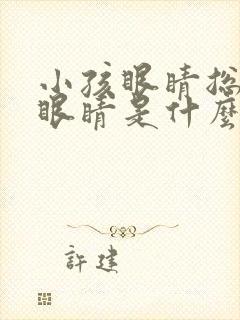 小孩眼睛总
眼睛是什麼
許建